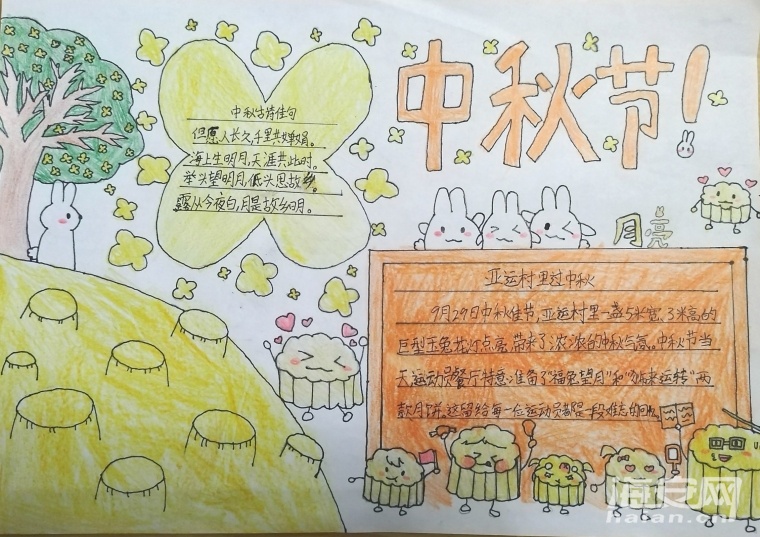 中秋节!
中秋古诗佳句
但愿人长久,千里共婵娟。
海上生明月,天涯共此时。
举头望明月,低头思故乡。
露从今夜白,月是故乡明。
月亮
亚运村里过中秋
9月29日中秋佳节,亚运村里一盏5米宽,3米高的
巨型玉兔花灯点亮,带来了浓浓的中秋气氛。中秋节当
天运动员餐厅特意准备了"福兔望月"和"来运转"两
款月饼。这留给每一位运动员都是一段难忘的回忆
海安网
haian.cn